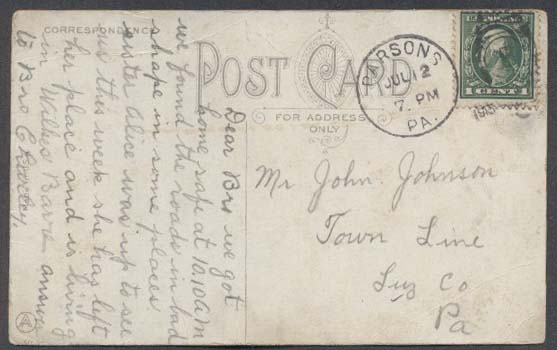 CORRESPONDENCE
POST CARD
FOR ADDRESS
ONLY
PARSONS
JUL 12
7. PM
PA.
1 CENT 1
Dear Bro we got
home safe at 10.10 am
we found the roads in bad
shape in some places
sister Alice was up to see
us this week she has left
her place and is living
in Wilkes Barre answer
to Bro
Mr John. Johnson
Town Line
Luz Co
Pa